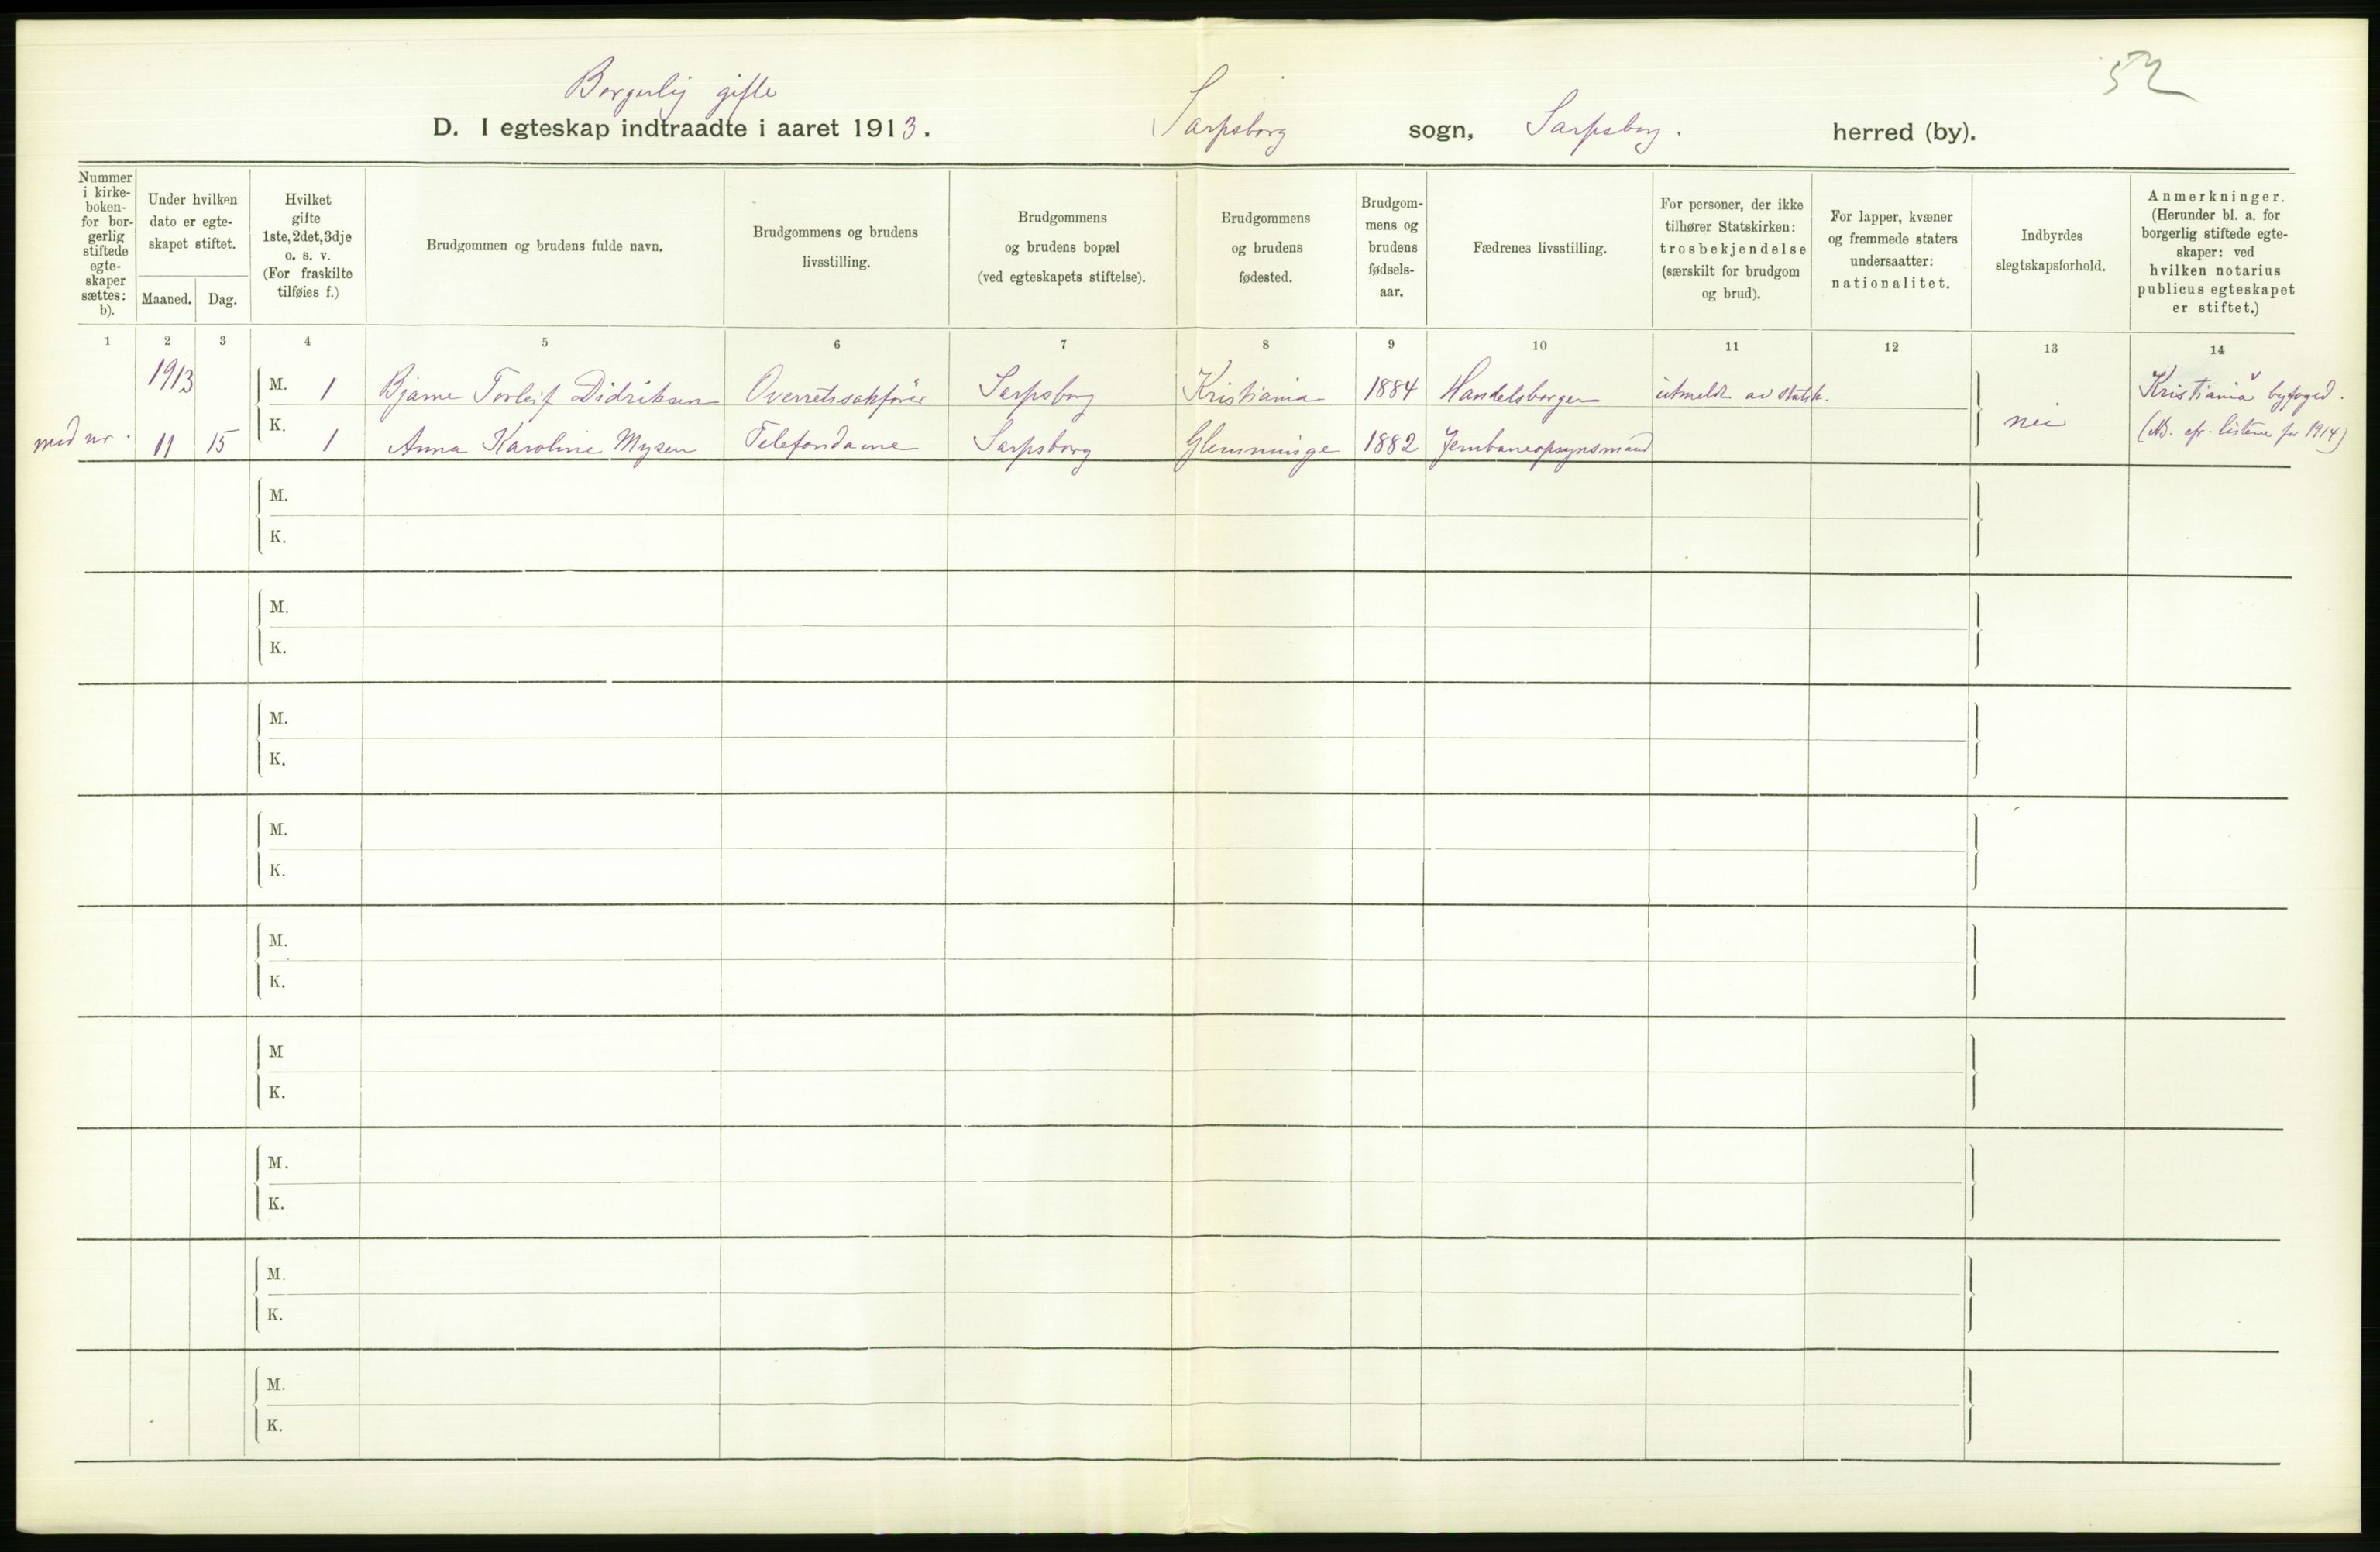 52
Borgerlig gifte
D. I egteskap indtraadte i aaret 1913. Sarpsborg sogn, Sarpsborg. herred (by).
Nummer
i kirke-
boken-
for bor-
gerlig
stiftede
egte-
skaper
sættes:
b).
Under hvilken
dato er egte-
skapet stiftet.
Maaned. Dag.
Hvilket
gifte
1ste, 2det, 3dje
o. s. v.
(For fraskilte
tilføies f.)
Brudgommen og brudens fulde navn.
Brudgommens og brudens
livsstilling.
Brudgommens
og brudens bopæl
(ved egteskapets stiftelse).
Brudgommens
og brudens
fødested.
Brudgom-
mens og
brudens
fødsels-
aar.
Fædrenes livsstilling.
For personer, der ikke
tilhører Statskirken:
trosbekjendelse
(særskilt for brudgom
og brud).
For lapper, kvæner
og fremmede staters
undersaatter:
nationalitet.
Indbyrdes
slegtskapsforhold.
Anmerkninger.
(Herunder bl. a. for
borgerlig stiftede egte-
skaper: ved
hvilken notarius
publicus egteskapet
er stiftet.)
1 2 3 4 5 6 7 8 9 10 11 12 13 14
1913 M. 1 Bjarne Torleif Didriksen Overretssakfører Sarpsborg Kristiania 1884 Handelsborger utmeldt av statsk. Kristiania byfoged.
nr. 11 15 K. 1 Anna Karoline Mysen Telefondame Sarpsborg Glemminge 1882 Jernbaneopsynsmand nei (NB. cfr. listene for 1914)
M.
K.
M.
K.
M.
K.
M.
K.
M.
K.
M
K.
M.
K.
M.
K.
M.
K.